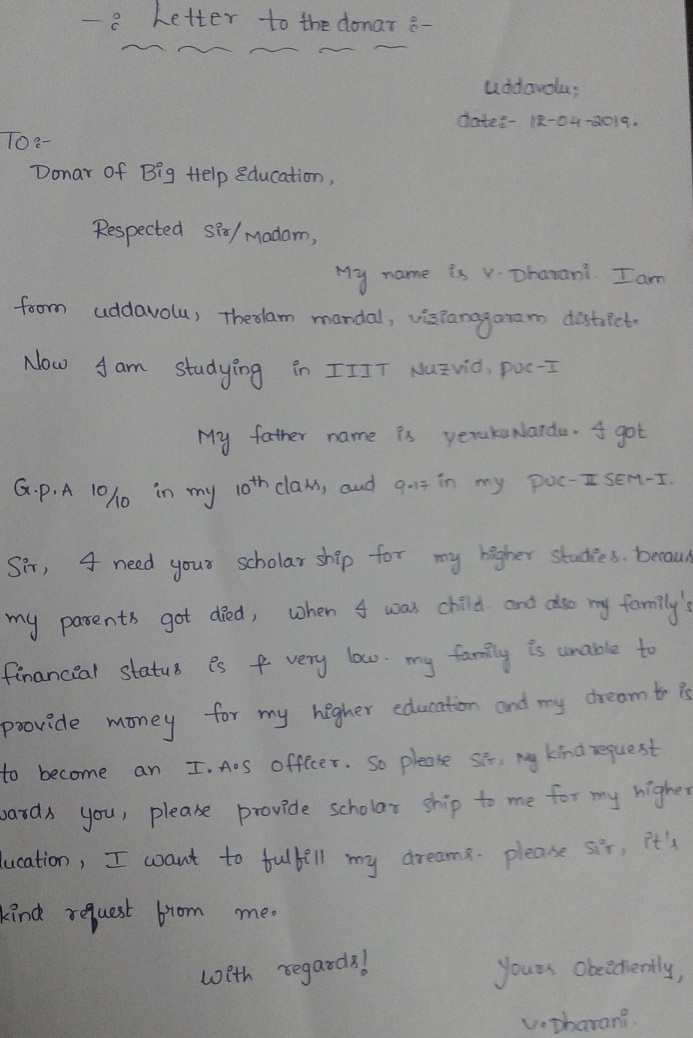 -: Letter to the donar :-
Uddavolu;
date:- 12-04-2019.
TO:-
Donar of Big Help Education,
Respected Sir/Madam,
My name is V. Dharani. I am
from uddavolu, Therlam mandal, vizianagaram district.
Now I am studying in IIIT Nuzvid, PUC-I
My father name is yerukuNaidu. I got
G.P.A 10/10 in my 10th class, and 9.17 in my PUC-II SEM-I.
Sir, I need your scholar ship for my higher studies. becaus
my parents got died, when I was child. and also my family's
financial status is very low. my family is unable to
provide money for my higher education and my dream is
to become an I.A.S officer. So please sir, my kind request
wards you, please provide scholar ship to me for my higher
lucation, I want to fulfill my dreams. please sir, it's
kind request from me.
With regards!
Yours Obeidiently,
V. Dharani.